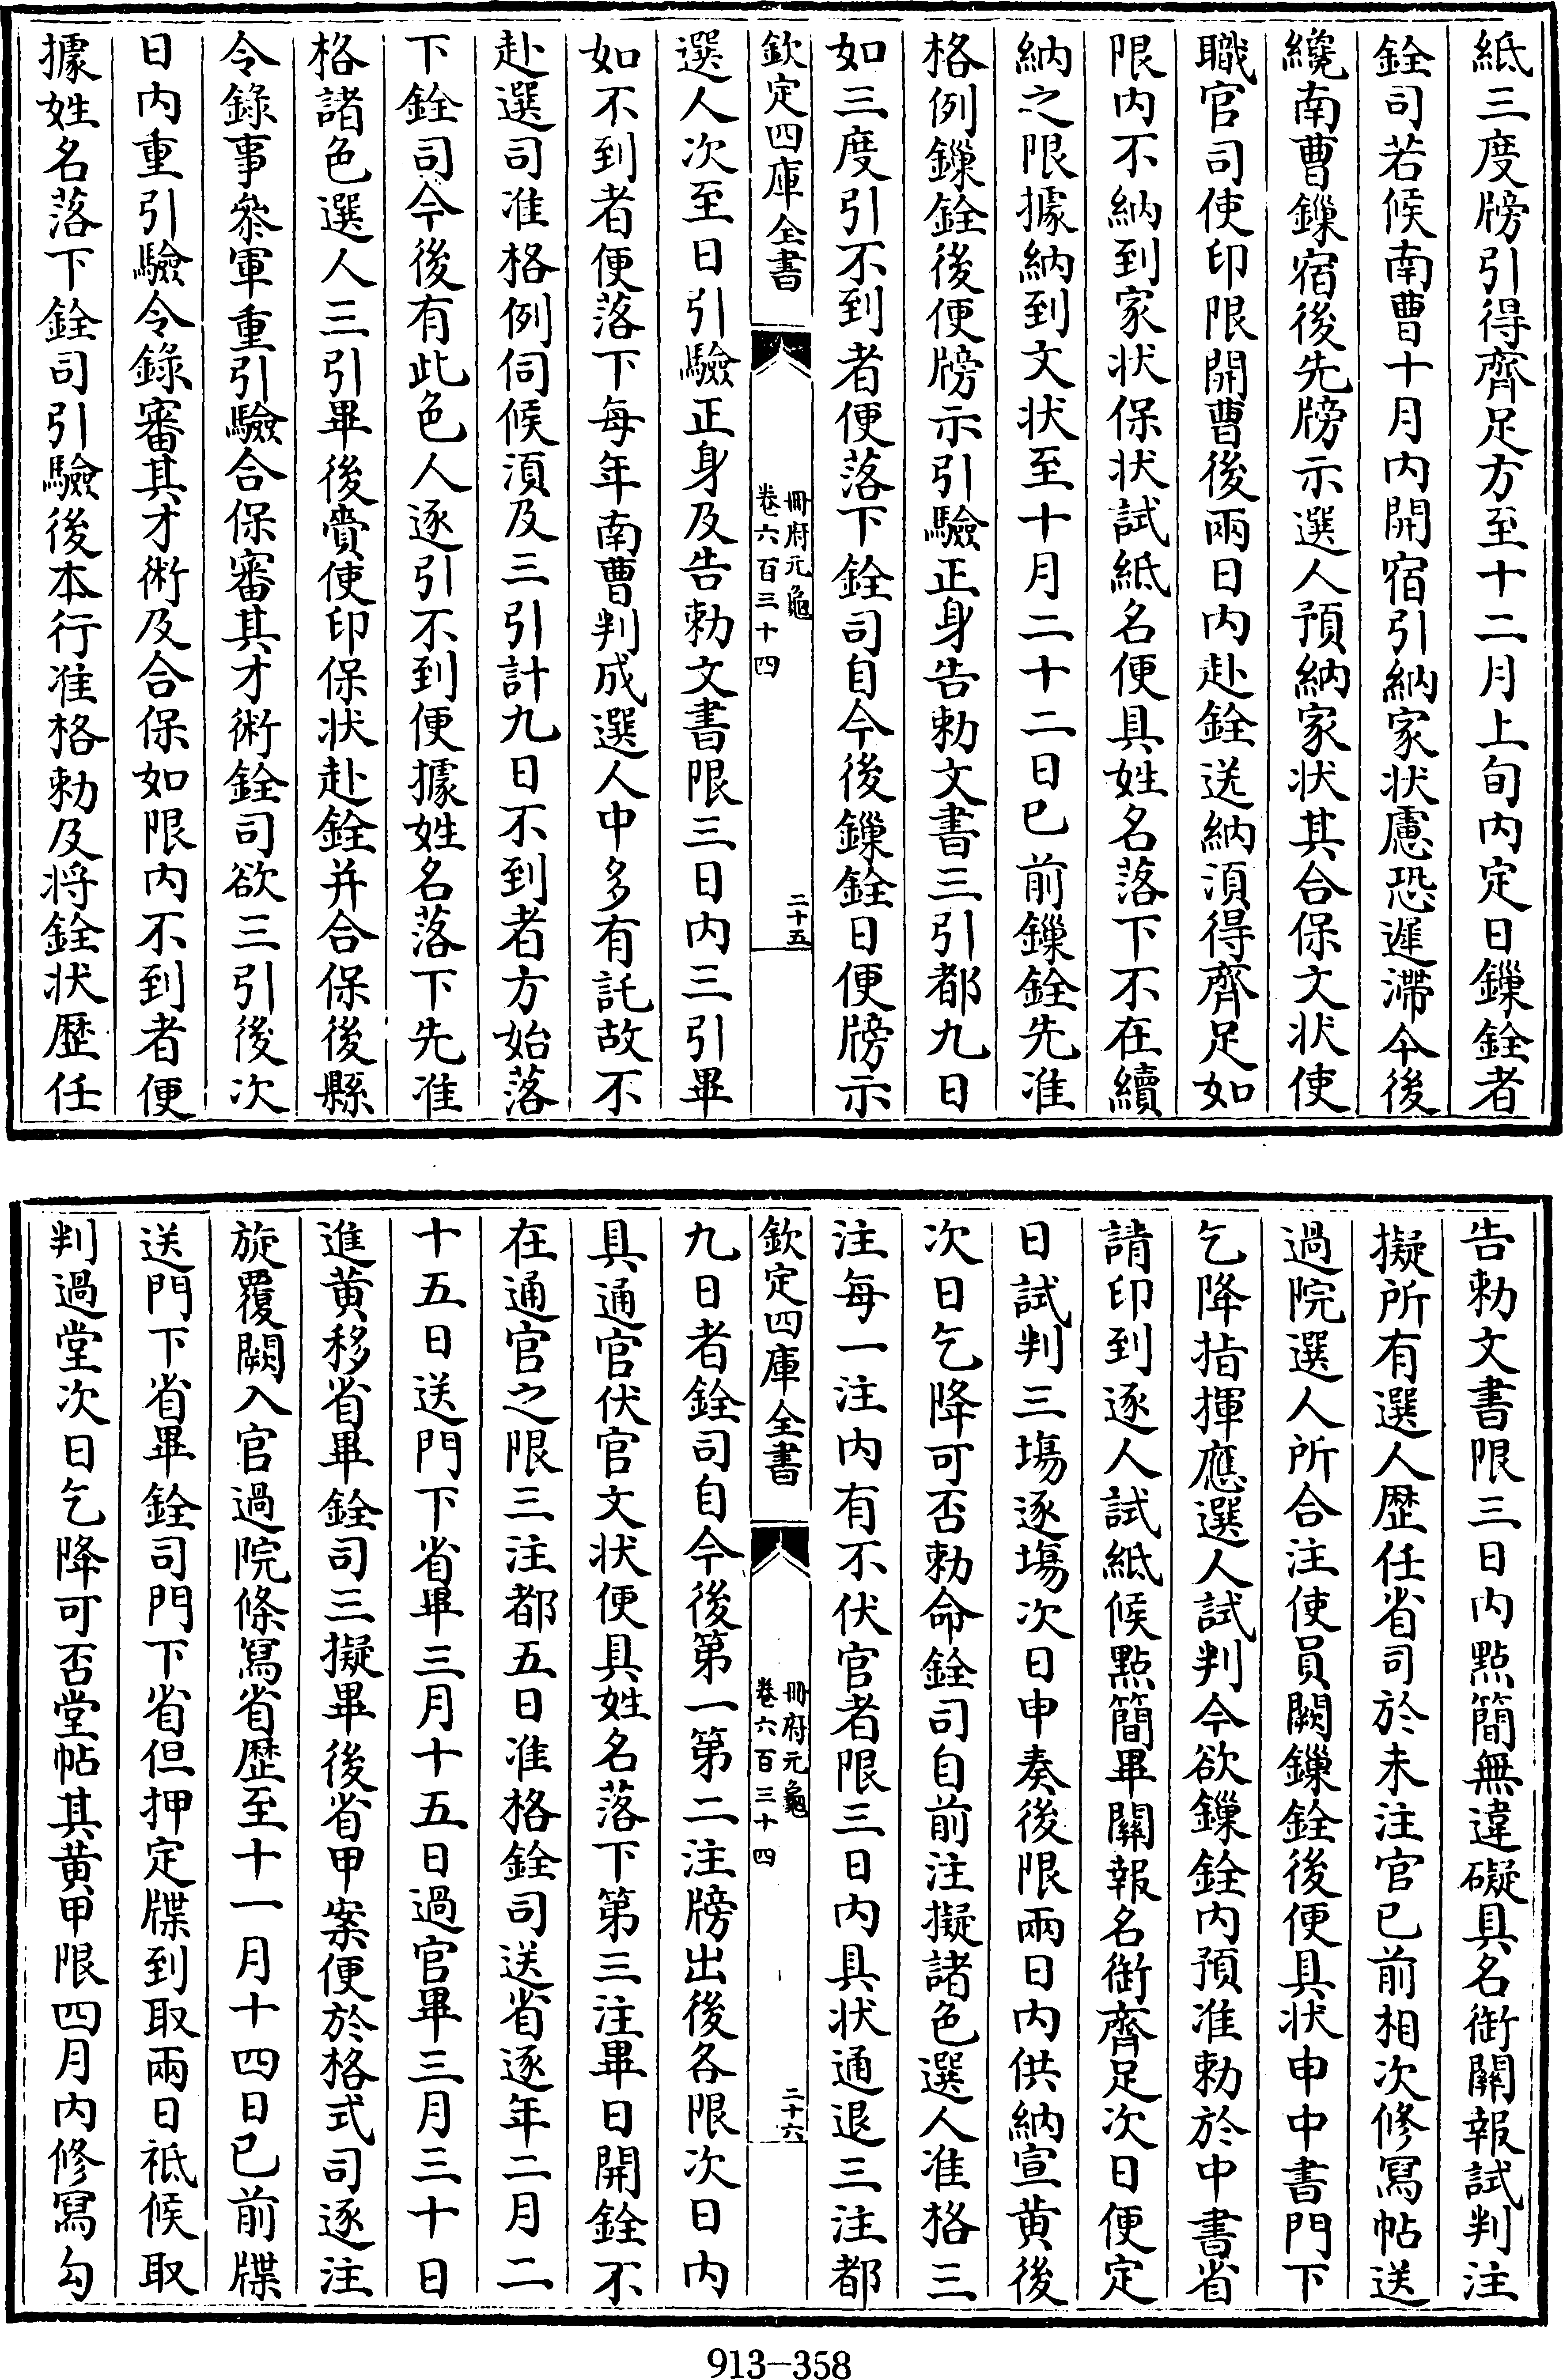 紙三度牓引得齊足方至十二月上旬内定日鏁銓者
銓司若候南曹十月内開宿引納家状慮恐遲滯今後
纔南曹鏁宿後先牓示選人預納家状其合保文状使
職官司使印限開曹後兩日内赴銓送納湏得齊足如
限内不納到家状保状試紙名便具姓名落下不在續
納之限據納到文状至十月二十二日已前鏁銓先准
格例鏁銓後便牓示引驗正身告勅文書三引都九日
如三度引不到者便落下銓司自今後鏁銓日便牓示
欽定四庫全書
冊府元龜
卷六百三十四
二十五
選人次至日引驗正身及告勅文書限三日内三引畢
如不到者便落下每年南曹判成選人中多有託故不
赴選司准格例伺候湏及三引計九日不到者方始落
下銓司今後有此色人逐引不到便據姓名落下先准
格諸色選人三引畢後賫使印保状赴銓并合保後縣
令錄事叅軍重引驗合保審其才術銓司欲三引後次
日内重引驗令錄審其才術及合保如限内不到者便
據姓名落下銓司引驗後本行准格勅及将銓状歴任
告勅文書限三日内點簡無違礙具名銜關報試判注
擬所有選人歴任省司於未注官已前相次修寫帖送
過院選人所合注使員闕鏁銓後便具状申中書門下
乞降指揮應選人試判今欲鏁銓内預准勅於中書省
請印到逐人試紙候點簡畢關報名銜齊足次日便定
日試判三塲逐塲次日申奏後限兩日内供納宣黄後
次日乞降可否勅命銓司自前注擬諸色選人准格三
注每一注内有不伏官者限三日内具状通退三注都
欽定四庫全書
冊府元龜
卷六百三十四
二十六
九日者銓司自今後第一第二注牓出後各限次日内
具通官伏官文状便具姓名落下第三注畢日開銓不
在通官之限三注都五日准格銓司送省逐年二月二
十五日送門下省畢三月十五日過官畢三月三十日
進黄移省畢銓司三擬畢後省甲案便於格式司逐注
旋覆闕入官過院條寫省歴至十一月十四日已前牒
送門下省畢銓司門下省但押定牒到取兩日祗候取
判過堂次日乞降可否堂帖其黄甲限四月内修寫勾
913—358